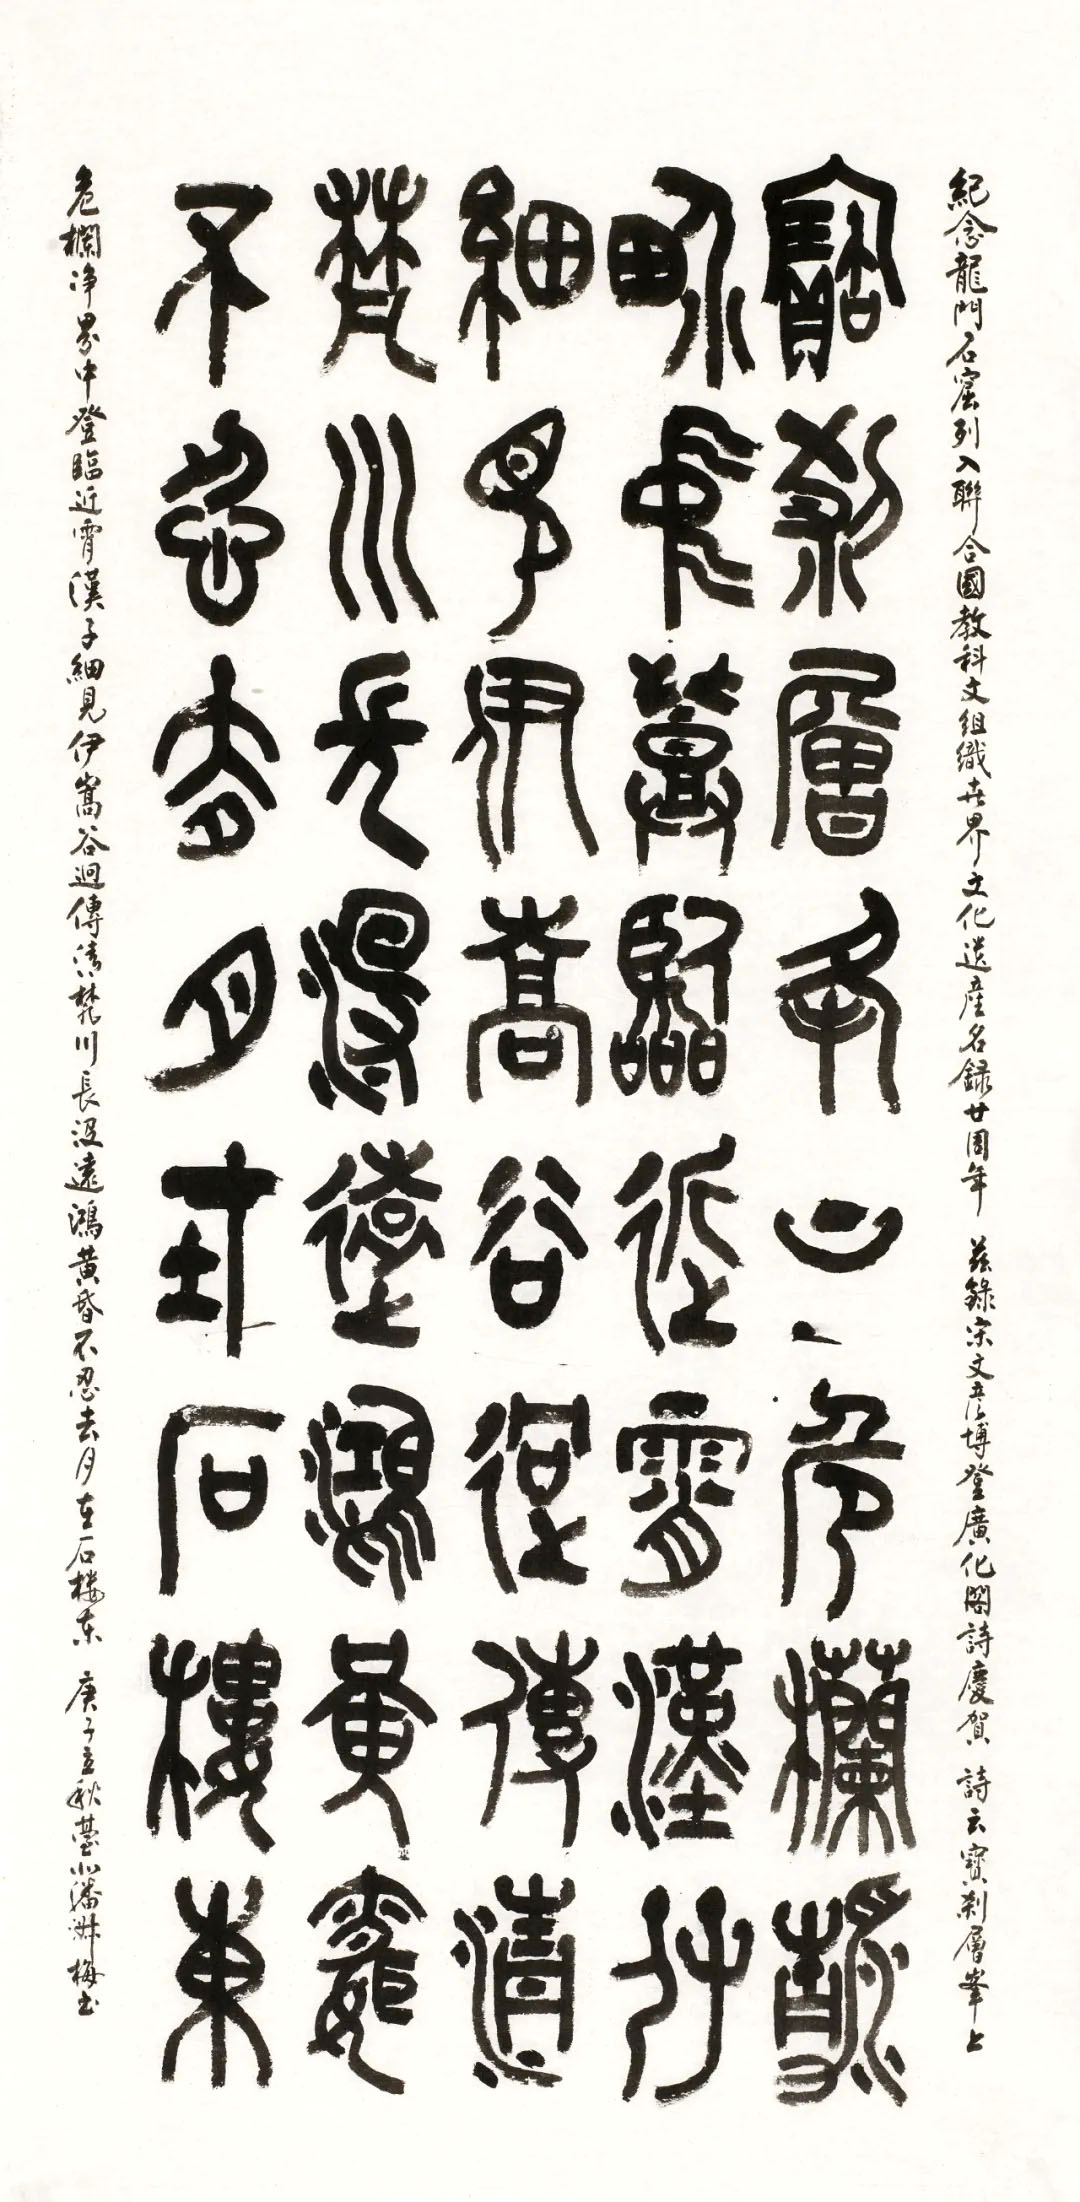 紀念龍門石窟列入聯合國教科文組織世界文化遺產名錄廿周年 茲錄宋文彥博登廣化閣詩慶賀 詩云寶刹層峯上
寶刹層峯上危欄靜
界中登臨近霄漢仔
細見伊嵩谷迴傳清
梵川長沒遠鴻黃昏
不忍去月在石樓東
危欄净界中登臨近霄漢子細見伊嵩谷迴傳清梵川長沒遠鴻黃昏不忍去月在石楼东 庚子立秋臺北潘梅书